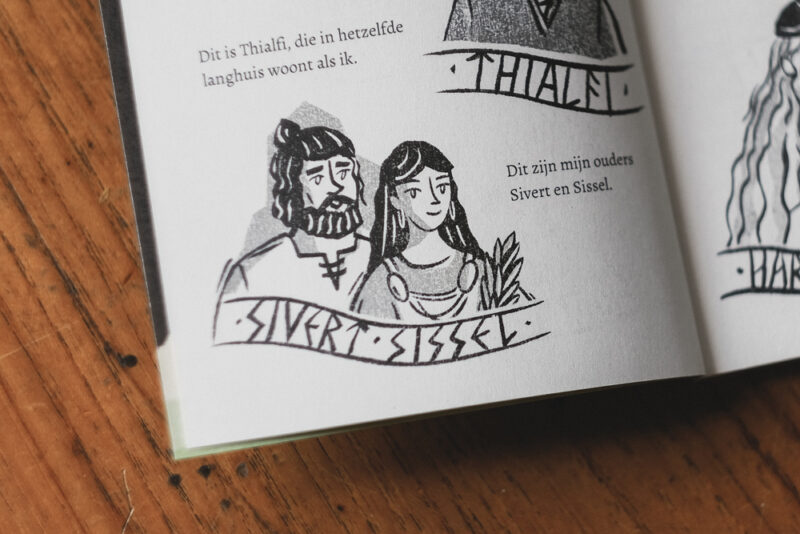 Dit is Thialfi, die in hetzelfde
langhuis woont als ik.
· THIALFI ·
Dit zijn mijn ouders
Sivert en Sissel.
· SIVERT · SISSEL ·
· HAR